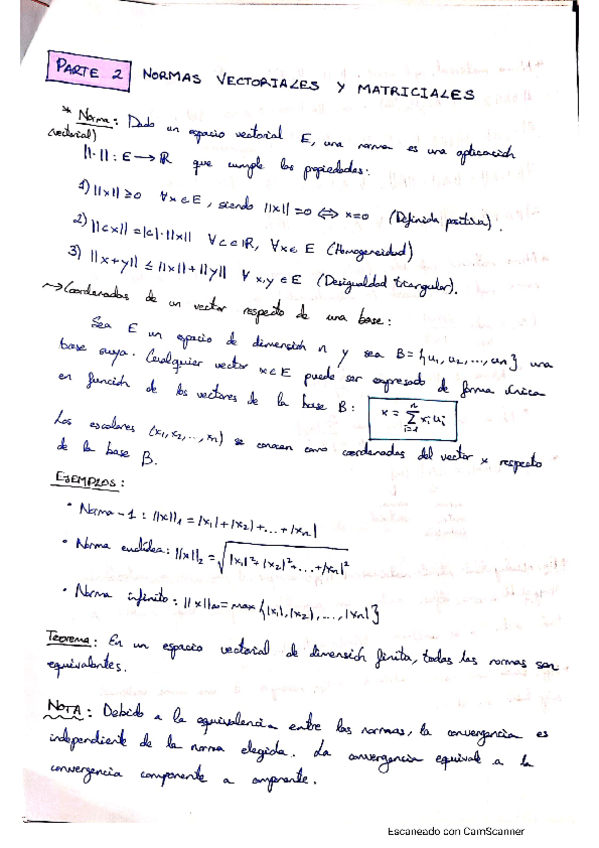 PARTE 2 NORMAS VECTORIALES Y MATRICIALES
* Norma: Dado un espacio vectorial E, una norma es una aplicación
(vectorial)
||·|| : E → ℝ que cumple las propiedades:
1) ||x|| ≥ 0 ∀x ∈ E, siendo ||x|| = 0 ⇔ x=0 (Definida positiva).
2) ||cx|| = |c|·||x|| ∀c ∈ ℝ, ∀x ∈ E (Homogeneidad)
3) ||x+y|| ≤ ||x|| + ||y|| ∀ x,y ∈ E (Desigualdad triangular).
⇝ Coordenadas de un vector respecto de una base:
Sea E un espacio de dimensión n y sea B = {u₁, u₂, ..., un} una
base suya. Cualquier vector x ∈ E puede ser expresado de forma única
en función de los vectores de la base B: x = ∑ᵢ₌₁ⁿ xᵢuᵢ
Los escalares (x₁, x₂, ..., xn) se conocen como coordenadas del vector x respecto
de la base B.
EJEMPLOS:
• Norma-1: ||x||₁ = |x₁| + |x₂| + ... + |xn|
• Norma euclídea: ||x||₂ = √(|x₁|² + |x₂|² + ... + |xn|²)
• Norma infinito: ||x||∞ = max {|x₁|, |x₂|, ..., |xn|}
Teorema: En un espacio vectorial de dimensión finita, todas las normas son
equivalentes.
NOTA: Debido a la equivalencia entre las normas, la convergencia es
independiente de la norma elegida. La convergencia equival a la
convergencia componente a componente.
Escaneado con CamScanner